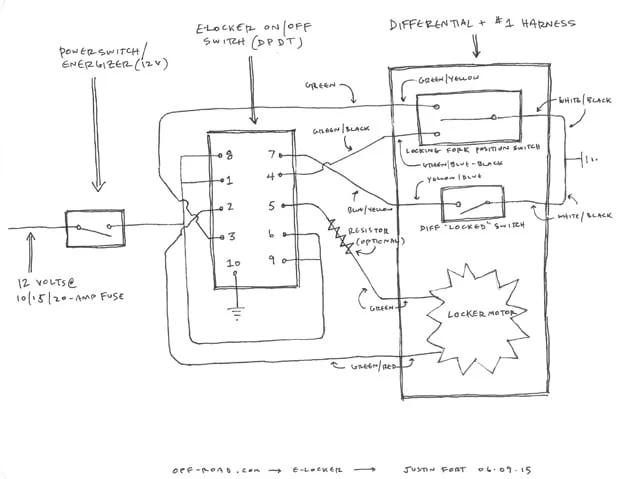 E-LOCKER ON/OFF
SWITCH (DPDT)
DIFFERENTIAL + #1 HARNESS
POWER SWITCH/
ENERGIZER (12V)
GREEN
GREEN/YELLOW
WHITE/BLACK
GREEN/BLACK
LOCKING FORK POSITION SWITCH
GREEN/BLUE-BLACK
YELLOW/BLUE
8 7
1 4
2 5
3 6
10 9
BLUE/YELLOW
DIFF "LOCKED" SWITCH
WHITE/BLACK
RESISTOR
(OPTIONAL)
12 VOLTS @
10/15/20-AMP FUSE
GREEN
LOCKER MOTOR
GREEN/RED
OFF-ROAD.COM → E-LOCKER → JUSTIN FORT 06.09.15